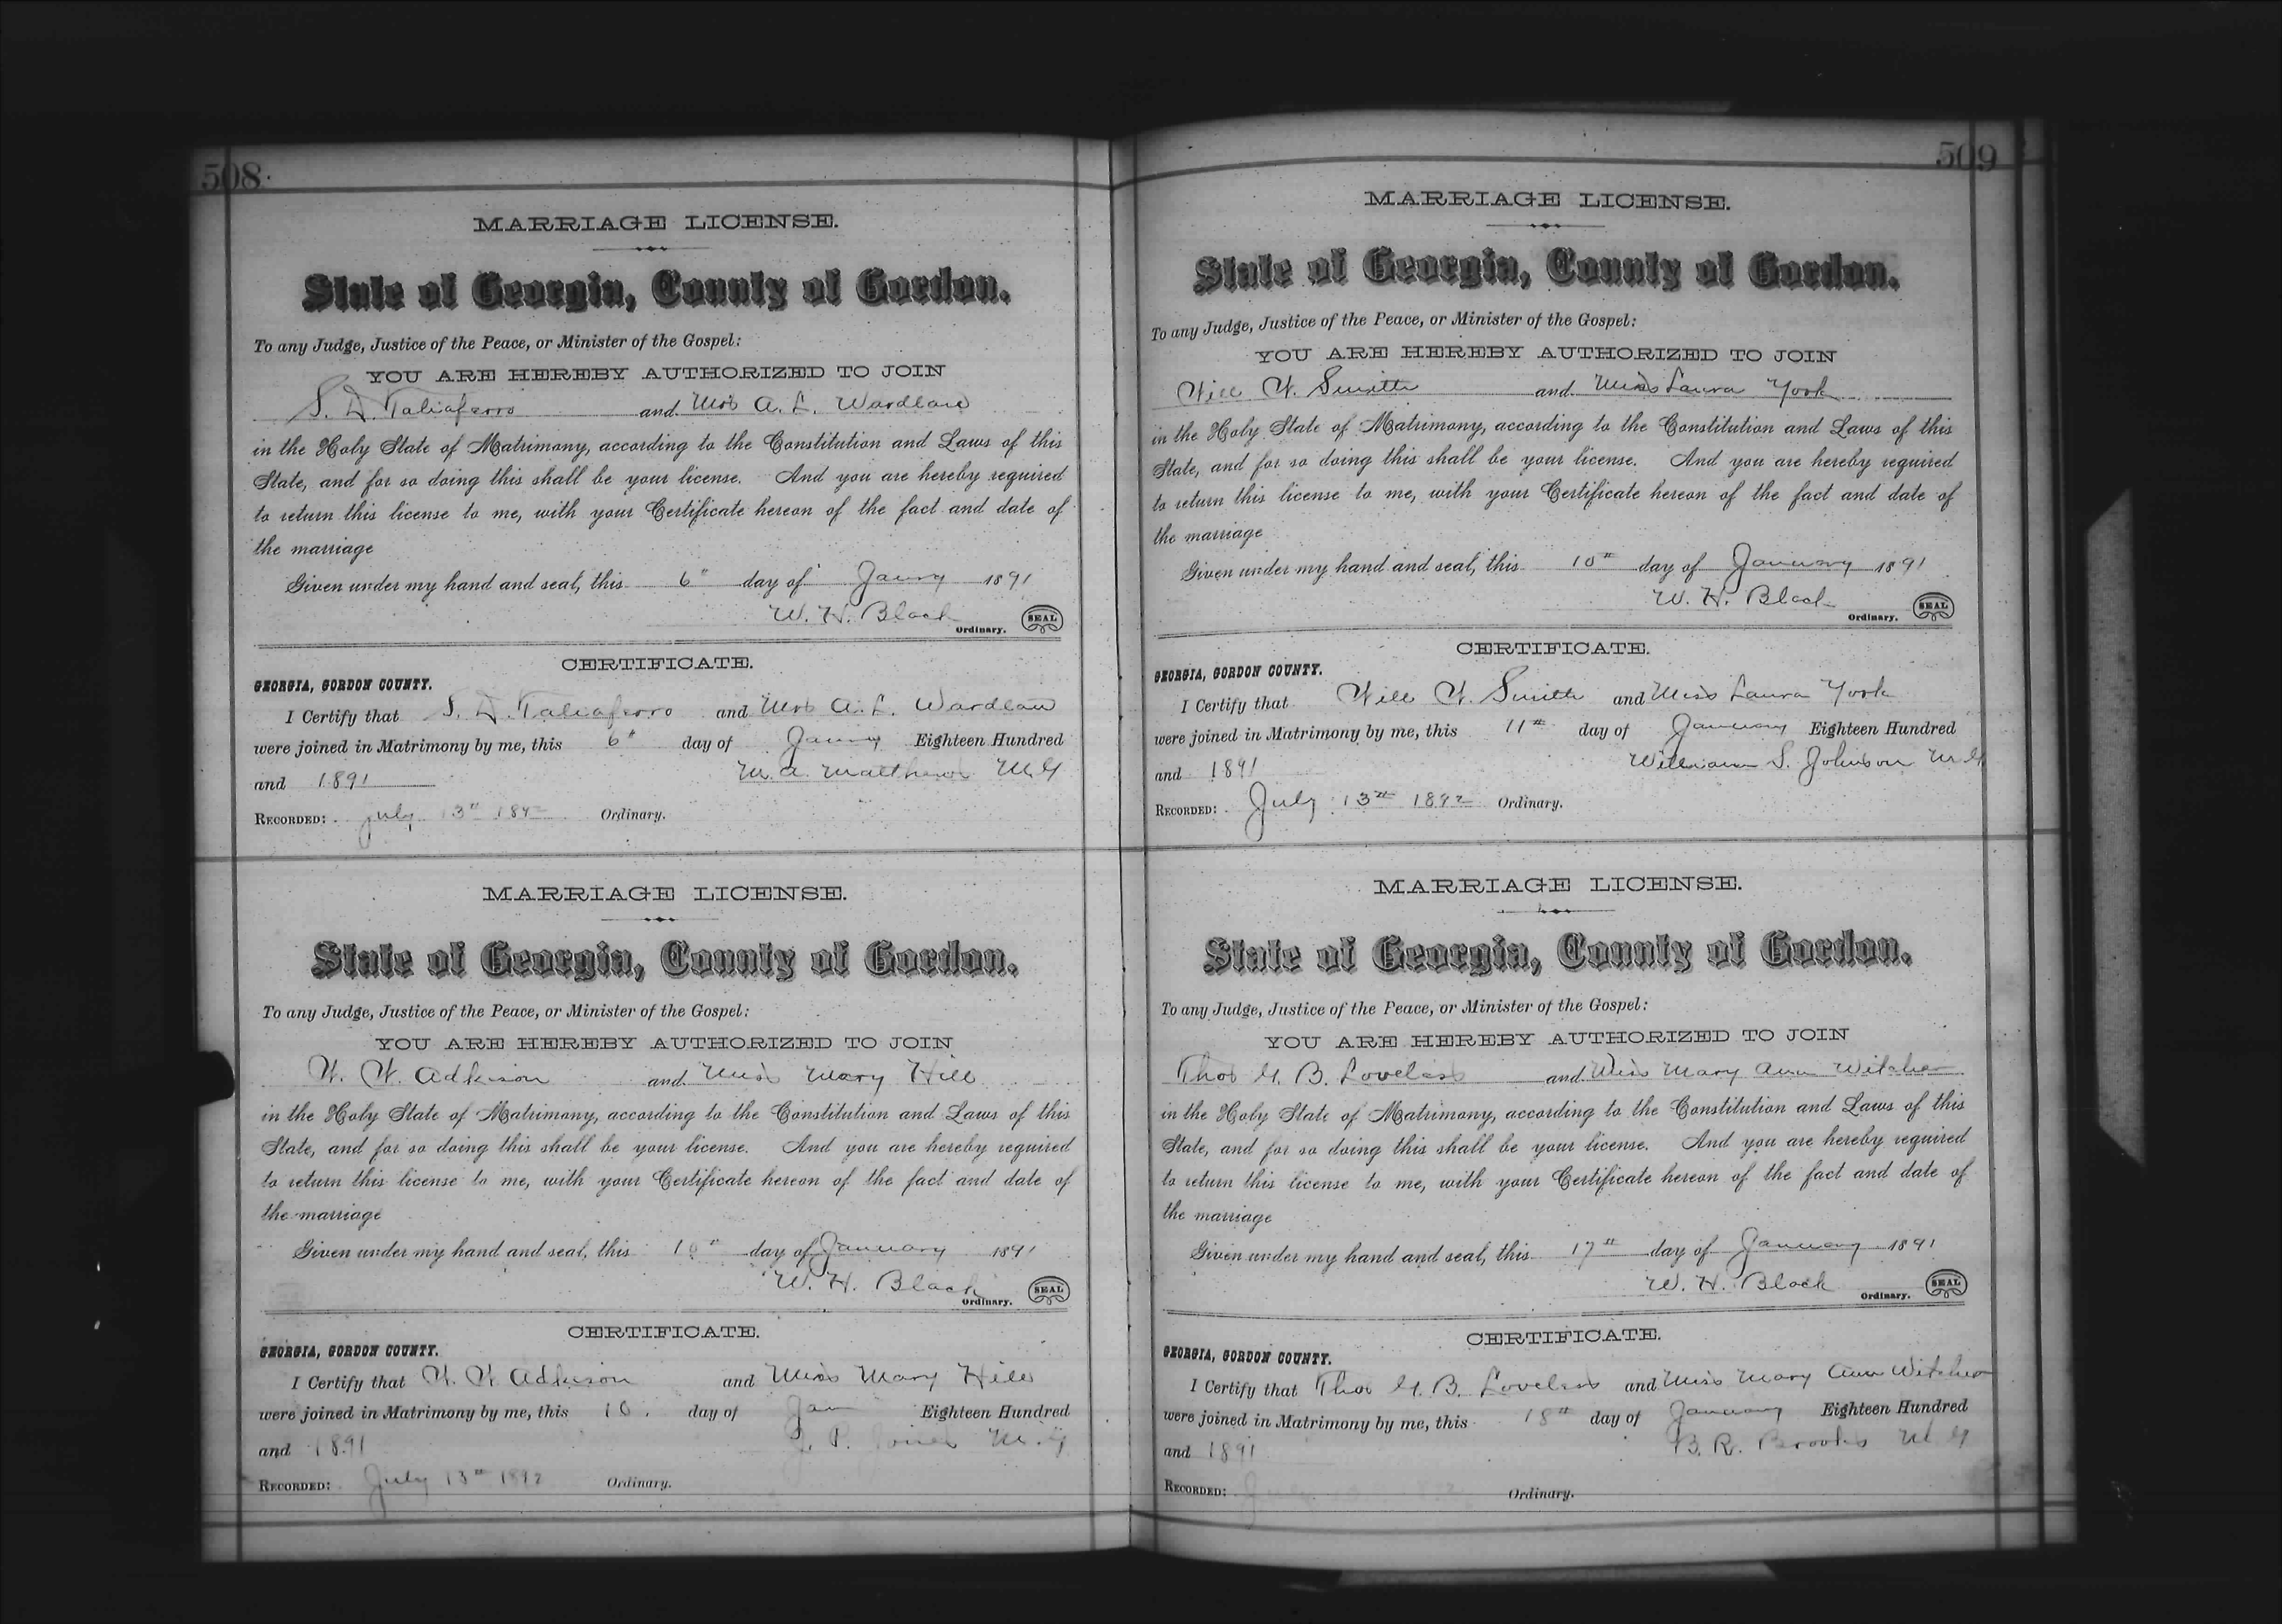 508.
MARRIAGE LICENSE.
State of Georgia, County of Gordon.
To any Judge, Justice of the Peace, or Minister of the Gospel:
YOU ARE HEREBY AUTHORIZED TO JOIN
S. D. Taliaferro and Mrs A. L. Wardlaw
in the Holy State of Matrimony, according to the Constitution and Laws of this
State, and for so doing this shall be your license. And you are hereby required
to return this license to me, with your Certificate hereon of the fact and date of
the marriage
Given under my hand and seal, this 6" day of Janry 1891
W. H. Black
Ordinary. SEAL
CERTIFICATE.
GEORGIA, GORDON COUNTY.
I Certify that S. D. Taliaferro and Mrs A. L. Wardlaw
were joined in Matrimony by me, this 6" day of Janry Eighteen Hundred
and 1891 M. A. Matthews M.G
RECORDED: July 13th 1892 Ordinary.
MARRIAGE LICENSE.
State of Georgia, County of Gordon.
To any Judge, Justice of the Peace, or Minister of the Gospel:
YOU ARE HEREBY AUTHORIZED TO JOIN
W. W. Adkison and Miss Mary Hill
in the Holy State of Matrimony, according to the Constitution and Laws of this
State, and for so doing this shall be your license. And you are hereby required
to return this license to me, with your Certificate hereon of the fact and date of
the marriage
Given under my hand and seal, this 10" day of January 1891
W. H. Black
Ordinary. SEAL
CERTIFICATE.
GEORGIA, GORDON COUNTY.
I Certify that W. W. Adkison and Miss Mary Hill
were joined in Matrimony by me, this 10. day of Jan Eighteen Hundred
and 1891 J. P. Jones M.G
RECORDED: July 13th 1892 Ordinary.
509
MARRIAGE LICENSE.
State of Georgia, County of Gordon.
To any Judge, Justice of the Peace, or Minister of the Gospel:
YOU ARE HEREBY AUTHORIZED TO JOIN
Will W. Smith and Miss Laura York
in the Holy State of Matrimony, according to the Constitution and Laws of this
State, and for so doing this shall be your license. And you are hereby required
to return this license to me, with your Certificate hereon of the fact and date of
the marriage
Given under my hand and seal, this 10th day of January 1891
W. H. Black
Ordinary. SEAL
CERTIFICATE.
GEORGIA, GORDON COUNTY.
I Certify that Will W. Smith and Miss Laura York
were joined in Matrimony by me, this 11th day of January Eighteen Hundred
and 1891 William S. Johnson M.G
RECORDED: July 13th 1892 Ordinary.
MARRIAGE LICENSE.
State of Georgia, County of Gordon.
To any Judge, Justice of the Peace, or Minister of the Gospel:
YOU ARE HEREBY AUTHORIZED TO JOIN
Thos G. B. Loveless and Miss Mary Ann Witcher
in the Holy State of Matrimony, according to the Constitution and Laws of this
State, and for so doing this shall be your license. And you are hereby required
to return this license to me, with your Certificate hereon of the fact and date of
the marriage
Given under my hand and seal, this 17th day of January 1891
W. H. Black
Ordinary. SEAL
CERTIFICATE.
GEORGIA, GORDON COUNTY.
I Certify that Thos G. B. Loveless and Miss Mary Ann Witcher
were joined in Matrimony by me, this 18th day of January Eighteen Hundred
and 1891 B. R. Brooks M G
RECORDED: Ordinary.